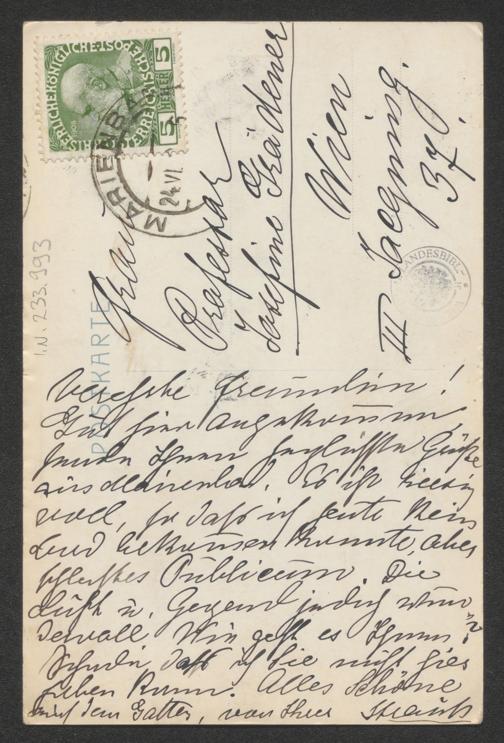 KAISERLICHE KÖNIGLICHE ÖSTERREICHISCHE POST
5 HELLER 5
MARIENBAD
24 VI
I.N. 233.993
POSTKARTE
Frau
Professor
Josefine Grädener
Wien
III Jacquing.
37
LANDESBIBL
Verehrte Freundin!
Gut hier angekommen,
sende Ihnen herzlichste Grüße
aus Marienbad. Es ist riesig
voll, so dass ich heute kein
Bad bekommen konnte, aber
schlechtes Publicum. Die
Luft u. Gegend jedoch wun
dervoll. Wie geht es Ihnen?
Schade, dass ich Sie nicht hier
sehen kann. Alles Schöne
auch dem Gatten, von Ihrer